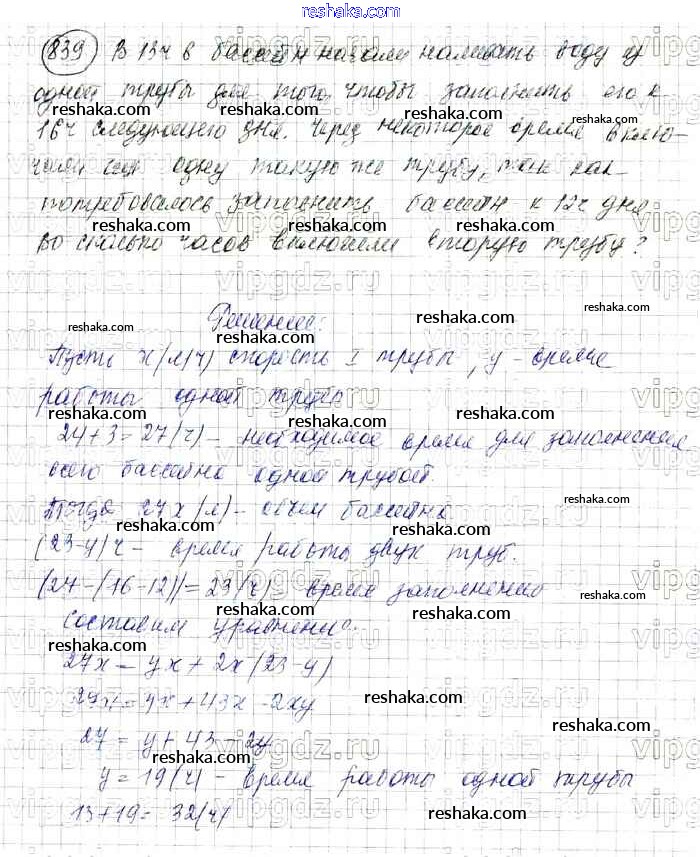 reshaka.com
839 В 13ч в бассейн начали наливать воду из
одной трубы для того, чтобы заполнить его к
16ч следующего дня. Через некоторое время вклю-
чили еще одну такую же трубу, так как
потребовалось заполнить бассейн к 12ч дня
Во сколько часов включили вторую трубу?
Решение:
Пусть x(л/ч) скорость I трубы, y - время
работы одной трубы
24+3=27(ч) - необходимое время для заполнения
всего бассейна одной трубой.
Тогда 27x(л) - объем бассейна
(23-y)ч - время работы двух труб.
(24-(16-12))=23(ч) время заполнения
Составим уравнение.
27x = yx + 2x(23-y)
= yx + 43x - 2xy
27 = y + 43 - 2y
y = 19(ч) - время работы одной трубы
13+19= 32(ч)